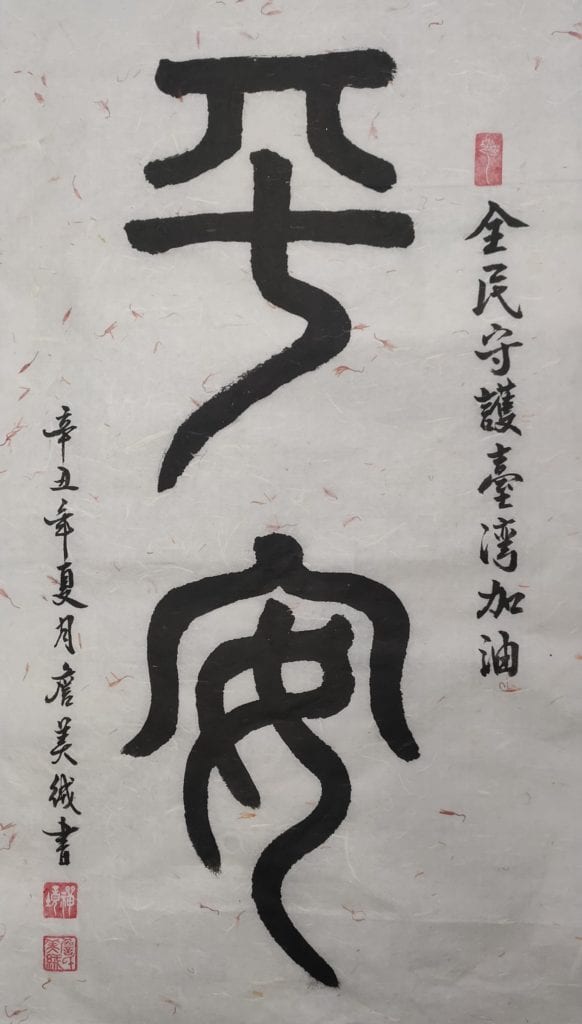 全民守護臺灣加油
平安
辛丑年夏月詹美絨書